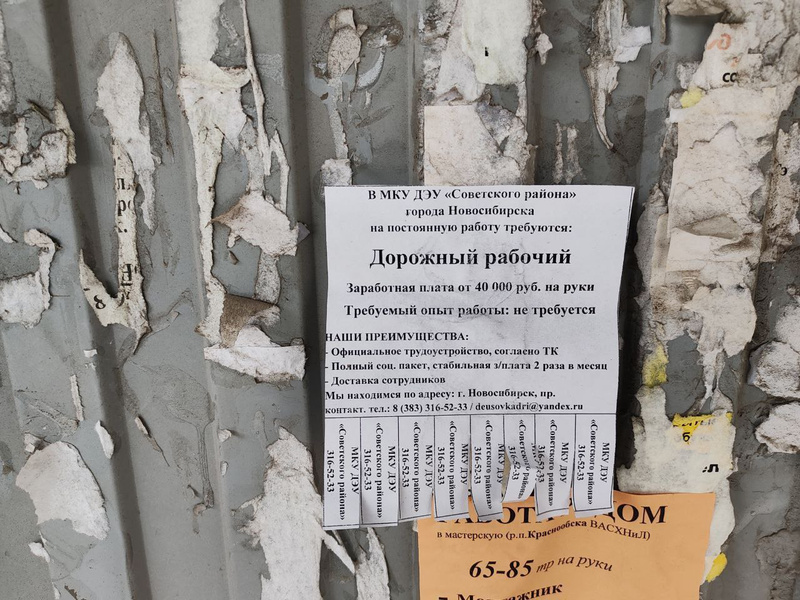 В МКУ ДЭУ «Советского района»
города Новосибирска
на постоянную работу требуются:
Дорожный рабочий
Заработная плата от 40 000 руб. на руки
Требуемый опыт работы: не требуется
НАШИ ПРЕИМУЩЕСТВА:
- Официальное трудоустройство, согласно ТК
- Полный соц. пакет, стабильная з/плата 2 раза в месяц
- Доставка сотрудников
Мы находимся по адресу: г. Новосибирск, пр.
контакт. тел.: 8 (383) 316-52-33 / deusovkadri@yandex.ru
МКУ ДЭУ
«Советского района»
316-52-33
МКУ ДЭУ
«Советского района»
316-52-33
МКУ ДЭУ
«Советского района»
316-52-33
МКУ ДЭУ
«Советского района»
316-52-33
МКУ ДЭУ
«Советского района»
316-52-33
МКУ ДЭУ
«Советского района»
316-52-33
МКУ ДЭУ
«Советского района»
316-52-33
МКУ ДЭУ
«Советского района»
316-52-33
в мастерскую (р.п.Краснообска ВАСХНиЛ)
65-85 тр на руки